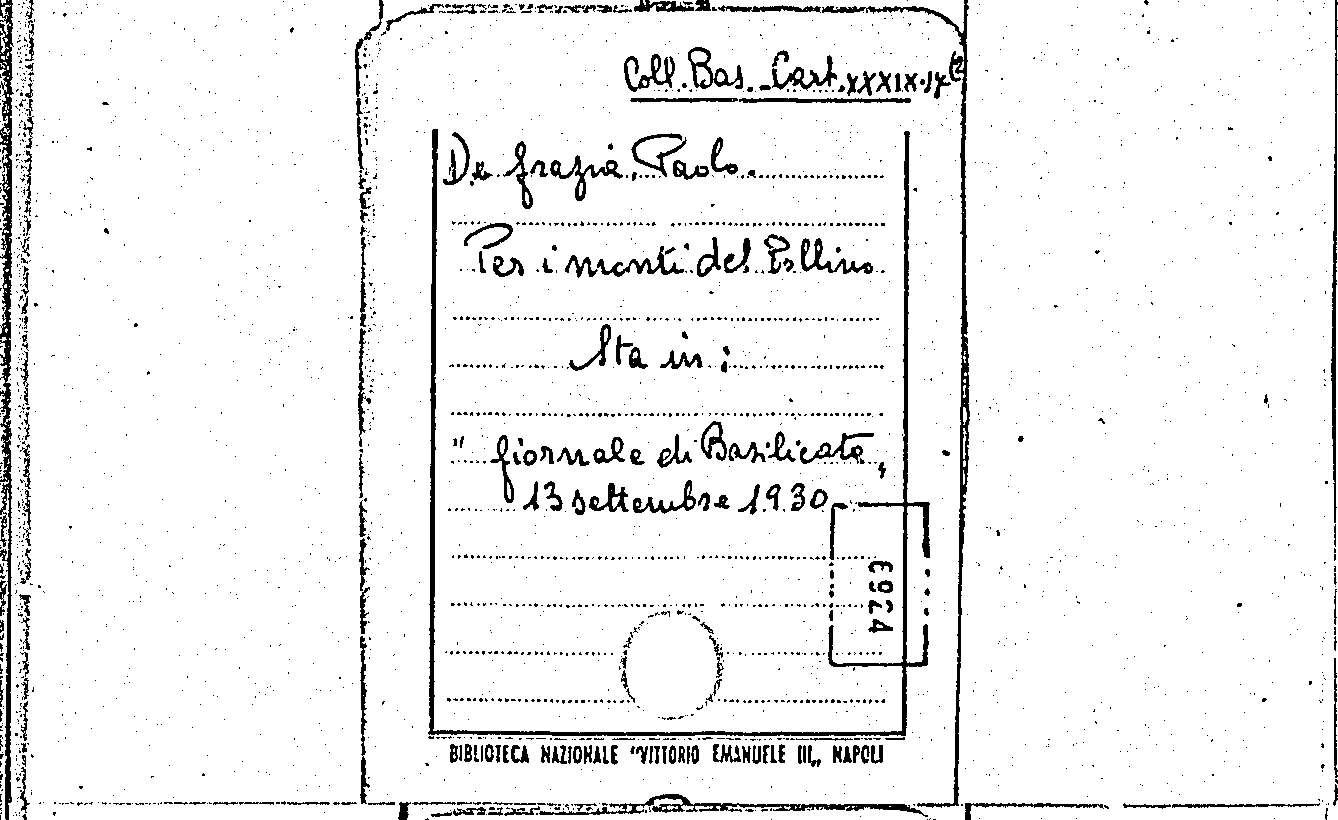 Coll. Bas. - Cart. XXXIX.17(2
De Grazia, Paolo.
Per i monti del Pollino
Sta in:
" Giornale di Basilicata,
13 settembre 1930
6924
BIBLIOTECA NAZIONALE "VITTORIO EMANUELE III„ NAPOLI